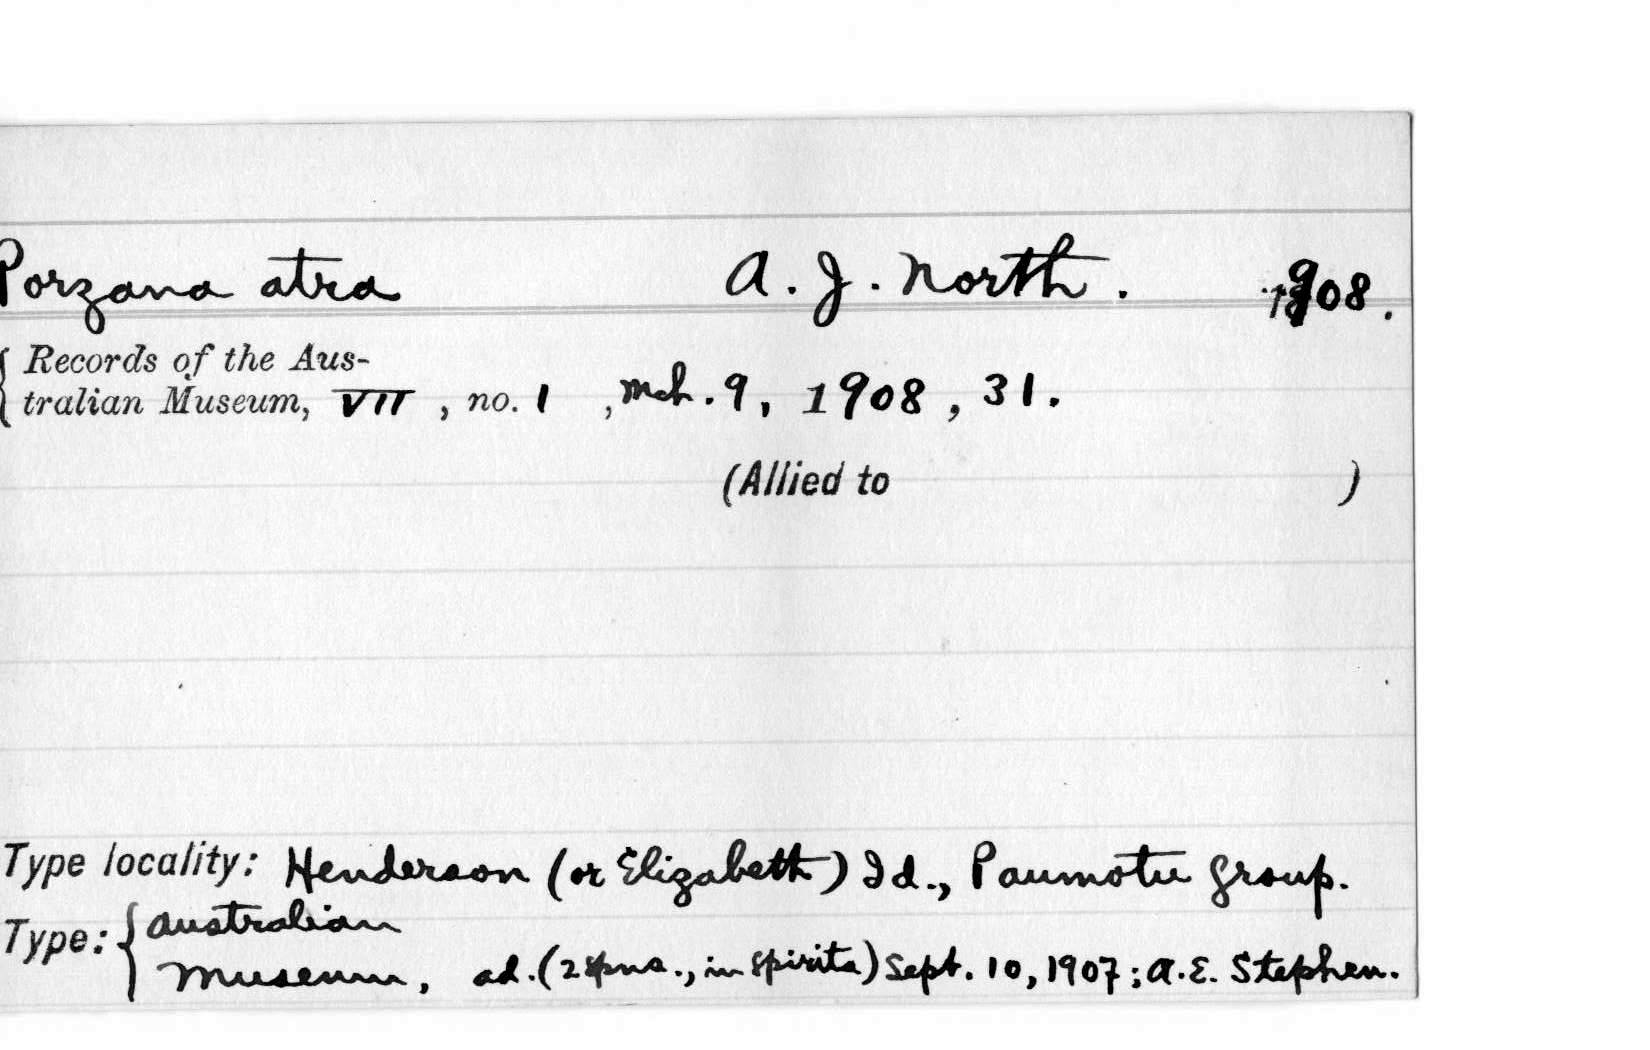 Porzana atra A. J. North. 1908.
Records of the Aus-
tralian Museum, VII, no. 1, Mch. 9, 1908, 31.
(Allied to )
Type locality: Henderson (or Elizabeth) Id., Paumotu Group.
Type: { Australian
Museum, ad. (2 spns., in spirits) Sept. 10, 1907; A. E. Stephen.